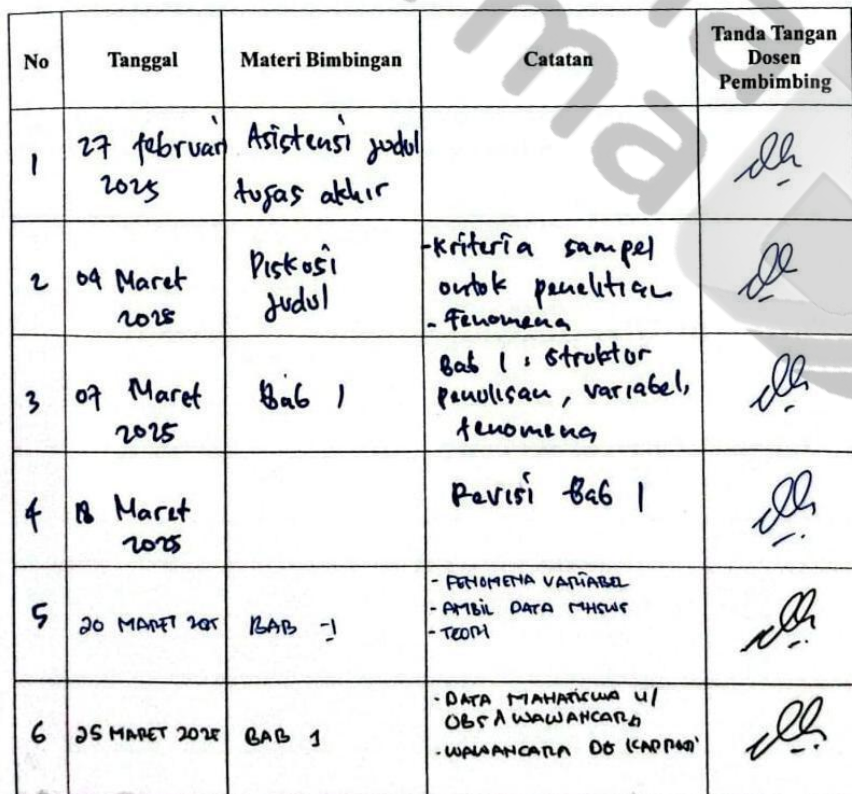 No Tanggal Materi Bimbingan Catatan Tanda Tangan Dosen Pembimbing
1 27 februari 2025 Asistensi judul tugas akhir
2 04 Maret 2025 Diskusi Judul - Kriteria sampel untuk penelitian - Fenomena
3 07 Maret 2025 Bab 1 Bab 1 : struktur penulisan, variabel, fenomena
4 18 Maret 2025 Revisi Bab 1
5 20 MARET 2025 BAB -1 - FENOMENA VARIABEL - AMBIL DATA MHSWS - TEORI
6 25 MARET 2025 BAB 1 - DATA MAHASISWA U/ OBS & WAWANCARA - WAWANCARA DG KAPRODI